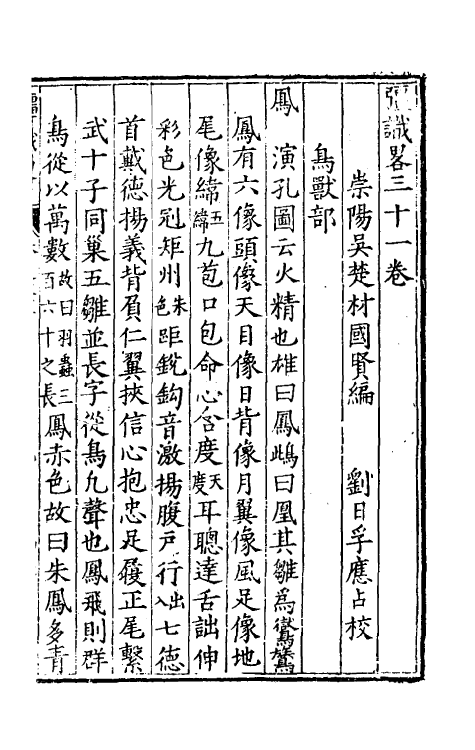 彊識畧三十一卷
崇陽吳楚材國賢編　劉日孚應占校
鳥獸部
鳳　演孔圖云火精也雄曰鳳鴟曰凰其雛爲鸞鷟
鳳有六像頭像天目像日背像月翼像風足像地
尾像緯五緯九苞口包命心含度天度耳聰達舌詘伸
彩色光冠矩州朱色距銳鈎音激揚腹戸行出入七德
首戴德揚義背負仁翼挾信心抱忠足履正尾繫
武十子同巢五雛並長字從鳥九聲也鳳飛則群
鳥從以萬數故曰羽蟲三百六十之長鳳赤色故曰朱鳳多青